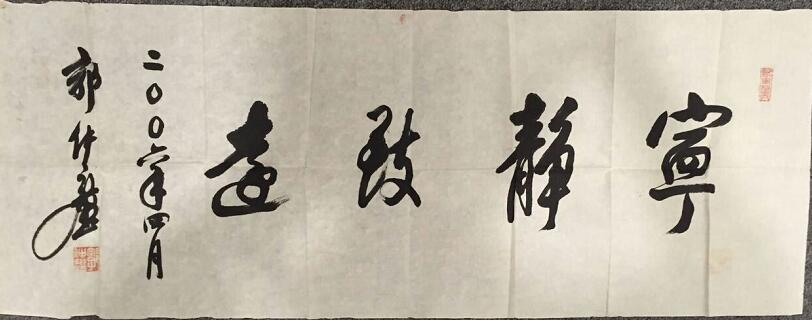 寧靜致遠
二〇〇六年四月
郭